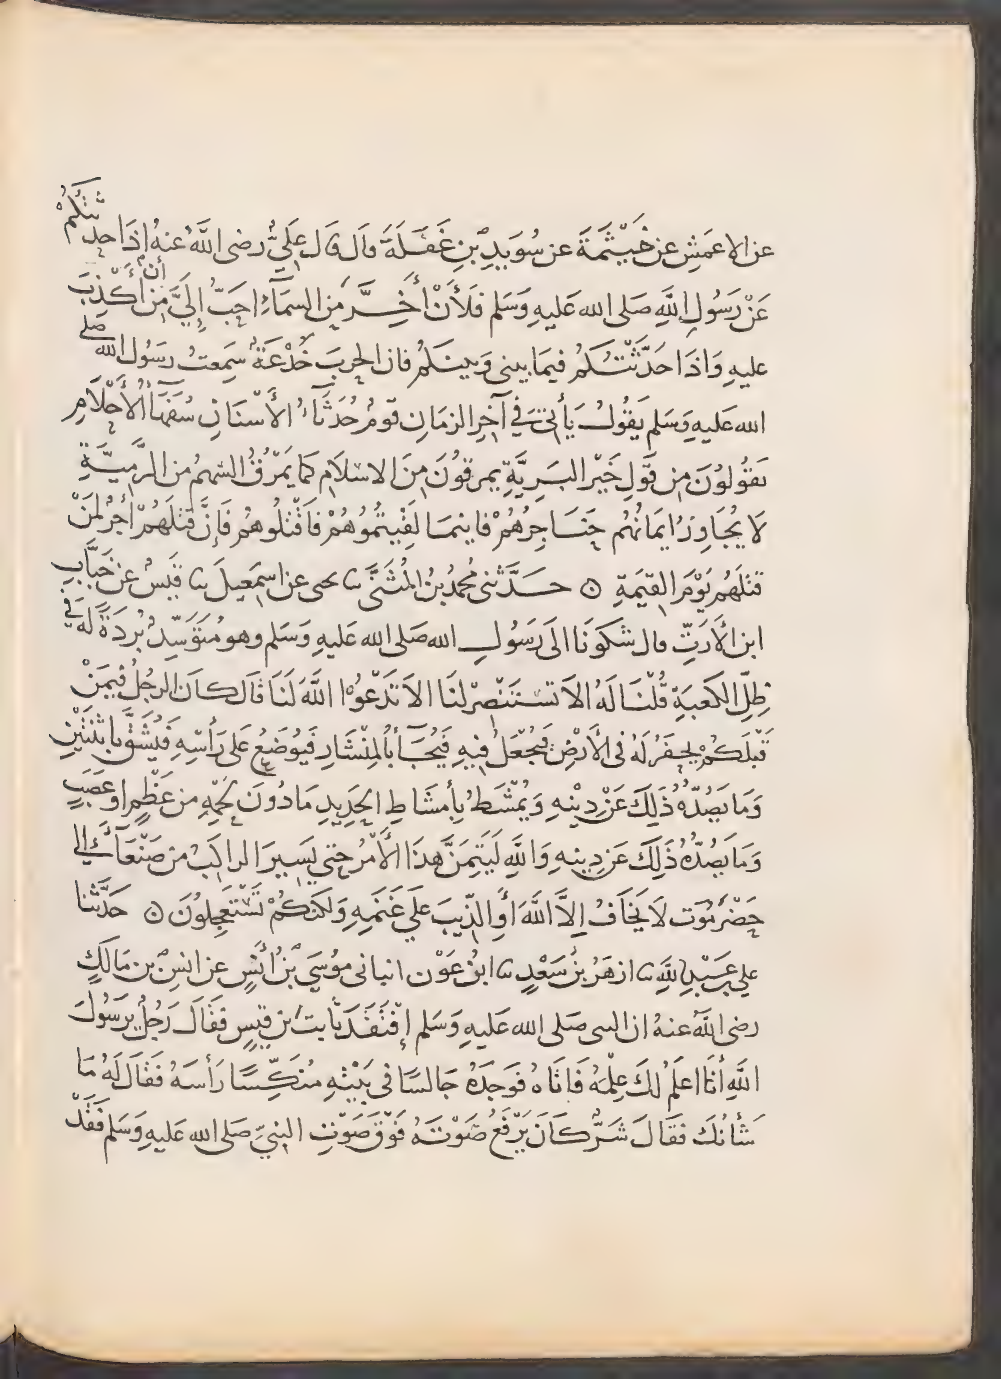 عن الاعمش عن خَيْثَمَةَ عن سُوَيدِ بْنِ غَفَلَةَ قال قال عَلِيٌّ رضى اللَّه عنه اِذَا حدثتكم
عَنْ رَسُولِ اللَّهِ صَلى الله عَليهِ وَسَلم فَلَأَنْ أَخِرَّ مِن السمَاءِ احَبُّ إِلَيَّ مِن أن أَكْذِبَ
عليهِ وَاذَا حَدَّثْتُكُم فيمَا بينى وَبينكم فان الحربَ خُدْعَةٌ سَمِعتُ رسَوُل الله صلى
الله عَليهِ وَسَلم يَقُولُ يَأتِى فِي آخِرِ الزمَانِ قومٌ حُدَثَآءُ الأَسْنَانِ سُفَهَآءُ الأَحْلَامِ
يَقُولُونَ مِن قَولِ خَيْرِ البَرِيَّةِ يمرقونَ مِنَ الاسْلَامِ كمَا يَمْرُقُ السَّهمُ مِن الرَّمِيَّةِ
لَا يُجَاوِزُ ايمَانُهُم حَنَاجِرَهُمْ فاينما لَقِيتُمُوهُمْ فَاقْتُلُوهُم فَإِنَّ قَتْلَهُمْ أَجْرٌ لمَنْ
قَتَلَهُم يَوْمَ القِيمَةِ ۞ حَدَّثَنى مُحمدُ بنُ المُثَنَّى ثنا يحيى عن اسمعِيلَ ثنا قَيسٌ عن خَبَّابِ
ابن الأَرَتِّ قال شكَونَا الَى رَسُولِ الله صَلى الله عَليهِ وَسَلم وهو مُتَوَسِّدٌ بُرْدَةً لَهُ فى
ظِلِّ الكَعبَةِ قُلْنَا لَهُ الَا تَسْتَنْصِرُ لنَا الَا تَدْعُوا اللَّهَ لَنَا قَالَ كَانَ الرجُلُ فِيمَنْ
قَبْلَكُمْ يُحفَرُ لَهُ فى الأَرْضِ فيُجْعَلُ فِيهِ فَيُجَآءُ بالمِنْشَارِ فَيُوضَعُ على رَأْسِهِ فَيُشَقُّ بِاثْنَتَيْنِ
وَمَا يَصُدُّهُ ذَلِكَ عَنْ دِيْنِهِ وَيُمْشَطُ بِأَمشَاطِ الحَدِيدِ مَا دُونَ لَحمِهِ مِن عَظْمٍ اوْ عَصَبٍ
وَمَا يَصُدُّهُ ذَلِكَ عَن دِينِهِ وَاللَّهِ لَيَتِمَّنَّ هذَا الأَمْرُ حتى يَسِيرَ الراكِبُ مِن صَنْعَآءَ إلى
حَضْرَمَوت لَا يَخَافُ اِلاَّ اللَّهَ أَوِ الذِّيبَ عَلَى غَنَمِهِ وَلَكنكُمْ تَسْتَعْجِلُونَ ۞ حَدَّثَنا
علي بن عَبْدِ اللَّهِ ثنا ازهَرُ بنُ سَعْدٍ ثنا ابنُ عَوْن انبانى موُسَى بْنُ أَنَسٍ عن انَسِ بْنِ مَالكٍ
رضى اللَّه عَنهُ ان النبى صَلى الله عَليهِ وَسَلم اِفْتَقَدَ ثَابتَ بْنَ قَيسٍ فَقَالَ رَجُلٌ يرَسوُلَ
اللَّهِ أَنَا اعلَمُ لكَ عِلْمَهُ فَاتَاهُ فوَجَدَهُ جَالسًا فى بَيْتِهِ مُنَكِّسًا رَأسَهُ فَقَالَ لَهُ مَا
شَأنُكَ فقَالَ شَرٌّ كَانَ يَرْفَعُ صَوْتَهُ فَوْقَ صَوْتِ النبيِّ صَلى الله عَليهِ وَسَلم فَقَدْ